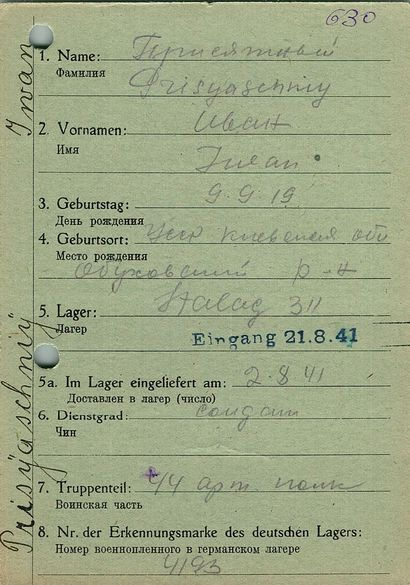 630
1. Name: Присяжный
Фамилия
Prisyaschniy
2. Vornamen: Иван
Имя
Iwan
3. Geburtstag: 9.9.19
День рождения
4. Geburtsort: Усср Киевская обл
Место рождения
Обуховский р-н
5. Lager: Stalag 311
Лагер
Eingang 21.8.41
5a. Im Lager eingeliefert am: 2.8.41
Доставлен в лагер (число)
6. Dienstgrad: солдат
Чин
7. Truppenteil: 44 арт. полк
Воинская часть
8. Nr. der Erkennungsmarke des deutschen Lagers:
Номер военнопленного в германском лагере
4193
Prisyaschniy Iwan